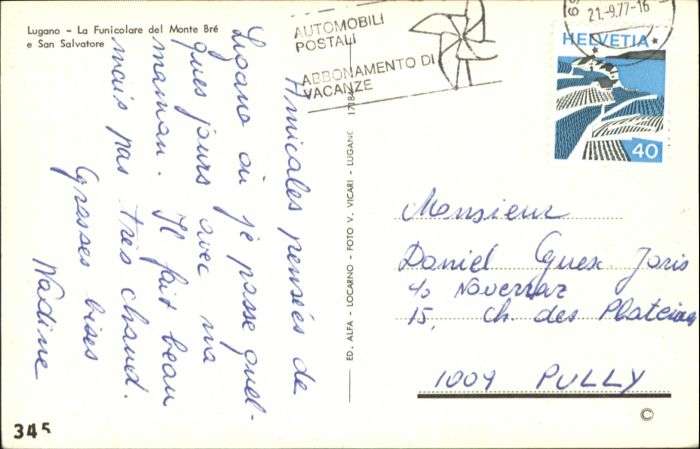 Lugano - La Funicolare del Monte Bré
e San Salvatore
AUTOMOBILI
POSTALI
ABBONAMENTO DI
VACANZE
21.-9.77-16
HELVETIA
40
Amicales pensées de
Lugano où je passe quel-
ques jours avec ma
maman. Il fait beau
mais pas très chaud.
Grosses bises
Nadine
ED. ALFA - LOCARNO - FOTO V. VICARI - LUGANO
Monsieur
Daniel Guex-Joris
15, ch. des Plateires
1009 PULLY
©
345